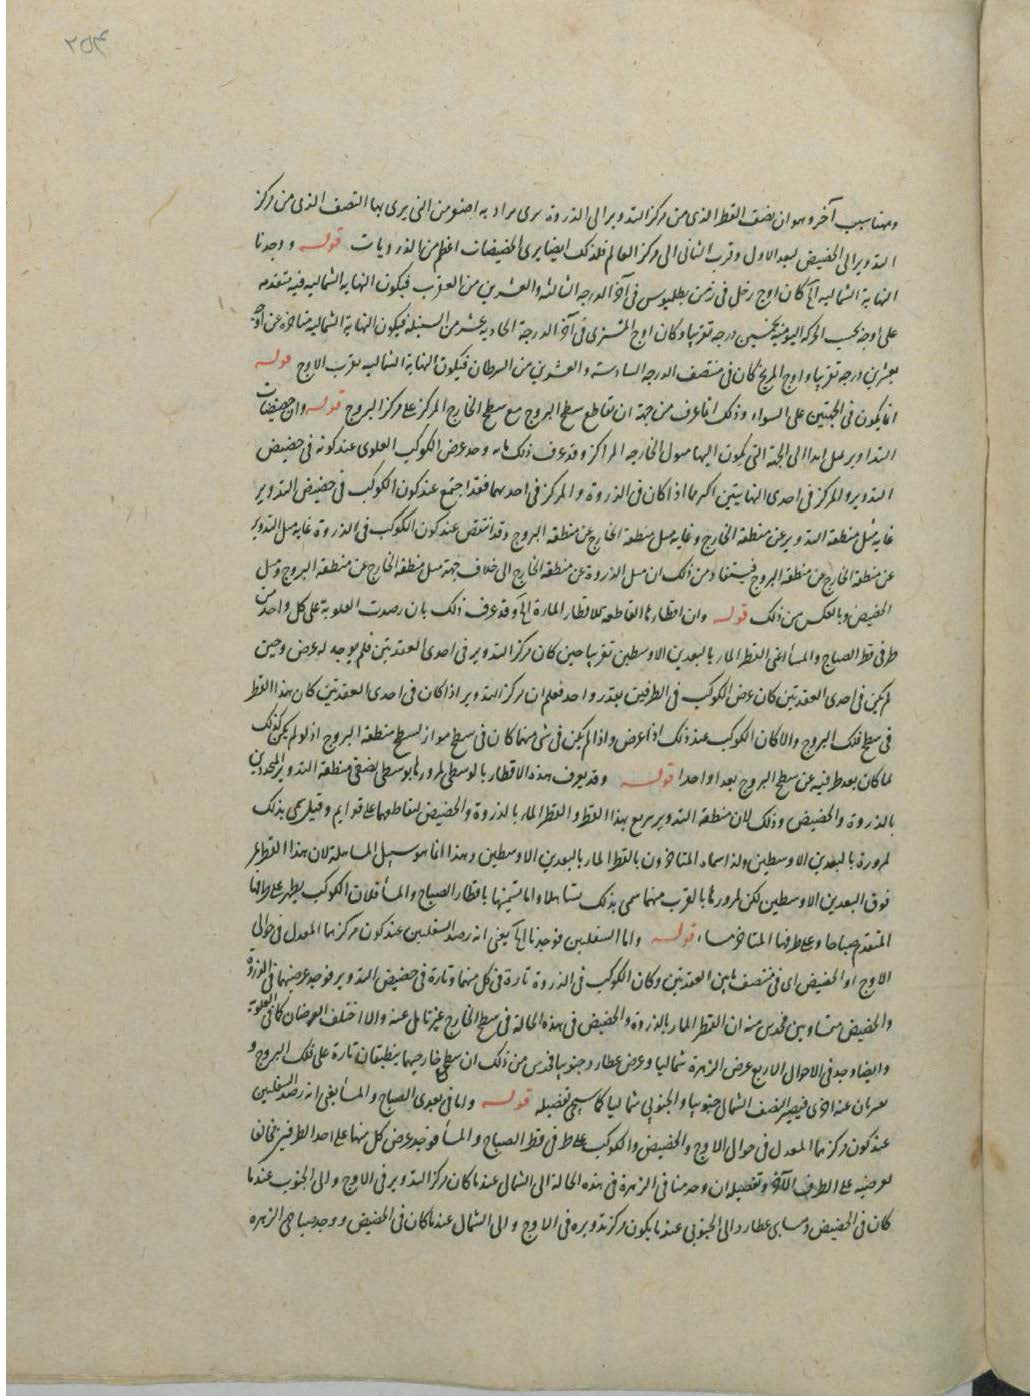 وههنا سبب آخر وهو ان نصف القطر الذى من مركز التدوير الى الذروة يرى مراد به اصغر من التى يرى بها النصف الذى من مركز
التدوير الى الحضيض لبعد الاول وقرب الثانى الى مركز العالم فلذلك ايضا يرى الحضيضات اعظم من الذرويات قوله ووجدنا
النهاية الشمالية اه كان اوج زحل فى زمن بطليوس فى آخر الدرجة الثالثة والعشرين من العقرب فيكون النهاية الشمالية فيه متقدمة
على اوجه بحسب الحركة اليومية بخمسين درجة تقريبا وكان اوج المشترى فى آخر الدرجة الحادية عشر من السنبلة فيكون النهاية الشمالية متاخرة عن اوجه
بعشرين درجة تقريبا واوج المريخ كان فى منتصف الدرجة السادسة والعشرين من السرطان فيكون النهاية الشمالية بقرب الاوج قوله
انما يكون فى الجهتين على السواء وذلك انما عرف من جهة ان تقاطع سطح البروج مع سطح الخارج المركز على مركز البروج قوله وان حضيضات
التداوير تميل ابدا الى الجهة التى يكون اليها ميول الخارجة المراكز وقد عرف ذلك بانه وجد عرض الكوكب العلوى عند كونه فى حضيض
التدوير والمركز فى احدى النهايتين اكثر مما اذا كان فى الذروة والمركز فى احدهما فقد اجتمع عند كون الكوكب فى حضيض التدوير
غاية ميل منطقة التدوير عن منطقة الخارج وغاية ميل منطقة الخارج عن منطقة البروج وقد انتقص عند كون الكوكب فى الذروة غاية ميل التدوير
عن منطقة الخارج عن منطقة البروج فيستفاد من ذلك ان ميل الذروة عن منطقة الخارج الى خلاف جهة ميل منطقة الخارج عن منطقة البروج وميل
الحضيض وبالعكس من ذلك قوله وان اقطارها القاطعة للاقطار المارة اه وقد عرف ذلك بان رصدت العلوية على كل واحد من
طرفى قطر الصباح والمسا اعنى القطر المار بالبعدين الاوسطين تقريبا حين كان مركز التدوير فى احدى العقدتين فلم يوجد له عرض وحين
لم يكن فى احدى العقدتين كان عرض الكوكب فى الطرفين بقدر واحد فعلم ان مركز التدوير اذا كان فى احدى العقدتين كان هذا القطر
فى سطح فلك البروج والا كان الكوكب عند ذلك ذا عرض واذا لم يكن فى شى منهما كان فى سطح مواز لسطح منطقة البروج اذ لو لم يكن كذلك
لما كان بعد طرفيه عن سطح البروج بعدا واحدا قوله وقد يعرف هذه الاقطار بالوسطى لمرورها بوسطى نصفى منطقة التدوير المحددين
بالذروة والحضيض وذلك لان منطقة التدوير يتربع بهذا القطر والقطر المار بالذروة والحضيض لتقاطعهما على قوايم وقيل سمى بذلك
لمروره بالبعدين الاوسطين ولذا سماه المتاخرون بالقطر المار بالبعدين الاوسطين وهذا انما هو سبيل المساهلة لان هذا القطر يمر
فوق البعدين الاوسطين لكن لمرورها بالقرب منهما سمى بذلك تساهلا واما تسميتها باقطار الصباح والمسا فلان الكوكب يظهر على طرفها
المتقدم صباحا وعلى طرفها المتاخر مساء قوله واما السفليين فوجدنا اه يعنى انه رصد السفليين عند كون مركزهما المعدل فى حوالى
الاوج او الحضيض اى فى منتصف ما بين العقدتين وكان الكوكب فى الذروة تارة فى كل منهما وتارة فى حضيض التدوير فوجد عرضيهما فى الذروة
والحضيض متساويين فحدس منه ان القطر المار بالذروة والحضيض فى هذه الحالة فى سطح الخارج غير مايل عنه والا اختلف العرضان كما فى العلوية
وايضا وجد فى الاحوال الاربع عرض الزهرة شماليا وعرض عطارد جنوبيا فحدس من ذلك ان سطحى خارجيهما ينطبقان تارة على فلك البروج و
يميلان عنه اخرى فيصير النصف الشمالى جنوبيا والجنوبى شماليا كما سيجى تفصيله قوله واما فى بعدى الصباح والمسا يعنى انه رصد السفليين
عند كون مركزهما المعدل فى حوالى الاوج والحضيض والكوكب على طرفى قطر الصباح والمسا فوجد عرض كل منهما على احد الطرفين مخالفا
لعرضيه على الطرف الآخر وتفصيله ان وجد مسا فى الزهرة فى هذه الحالة الى الشمالى عند ما كان مركز التدوير فى الاوج والى الجنوب عند ما
كان فى الحضيض ومساى عطارد الى الجنوبى عند ما يكون مركز تدويره فى الاوج والى الشمال عند ما كان فى الحضيض ووجد صباحى الزهره